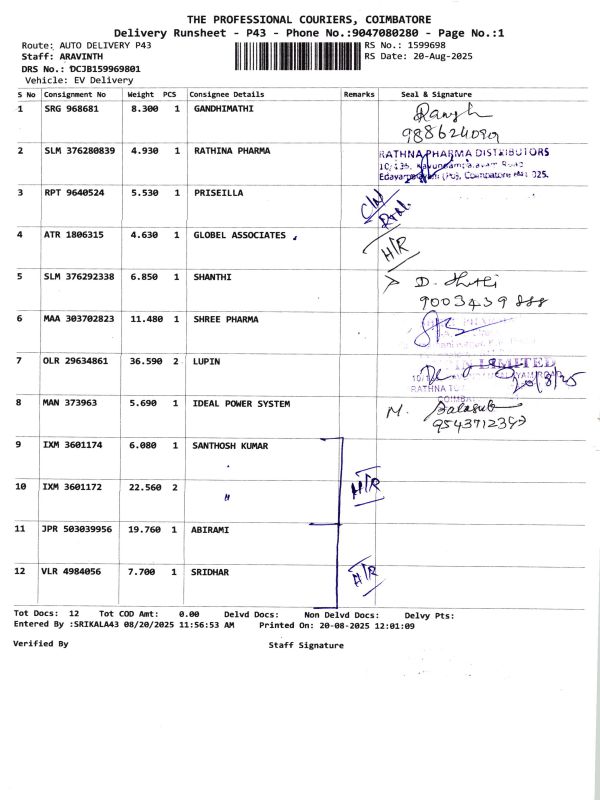 THE PROFESSIONAL COURIERS, COIMBATORE
Delivery Runsheet - P43 - Phone No.:9047080280 - Page No.:1
Route: AUTO DELIVERY P43 RS No.: 1599698
Staff: ARAVINTH RS Date: 20-Aug-2025
DRS No.: DCJB159969801
Vehicle: EV Delivery
S No Consignment No Weight PCS Consignee Details Remarks Seal & Signature
1 SRG 968681 8.300 1 GANDHIMATHI
2 SLM 376280839 4.930 1 RATHINA PHARMA RATHNA PHARMA DISTRIBUTORS
Coimbatore
3 RPT 9640524 5.530 1 PRISEILLA
4 ATR 1806315 4.630 1 GLOBEL ASSOCIATES H/R
5 SLM 376292338 6.850 1 SHANTHI D.
9003439888
6 MAA 303702823 11.480 1 SHREE PHARMA
7 OLR 29634861 36.590 2 LUPIN LIMITED
20/8/25
RATHNA
8 MAN 373963 5.690 1 IDEAL POWER SYSTEM M.
9 IXM 3601174 6.080 1 SANTHOSH KUMAR
10 IXM 3601172 22.560 2 " H/R
11 JPR 503039956 19.760 1 ABIRAMI
12 VLR 4984056 7.700 1 SRIDHAR H/R
Tot Docs: 12 Tot COD Amt: 0.00 Delvd Docs: Non Delvd Docs: Delvy Pts:
Entered By :SRIKALA43 08/20/2025 11:56:53 AM Printed On: 20-08-2025 12:01:09
Verified By Staff Signature